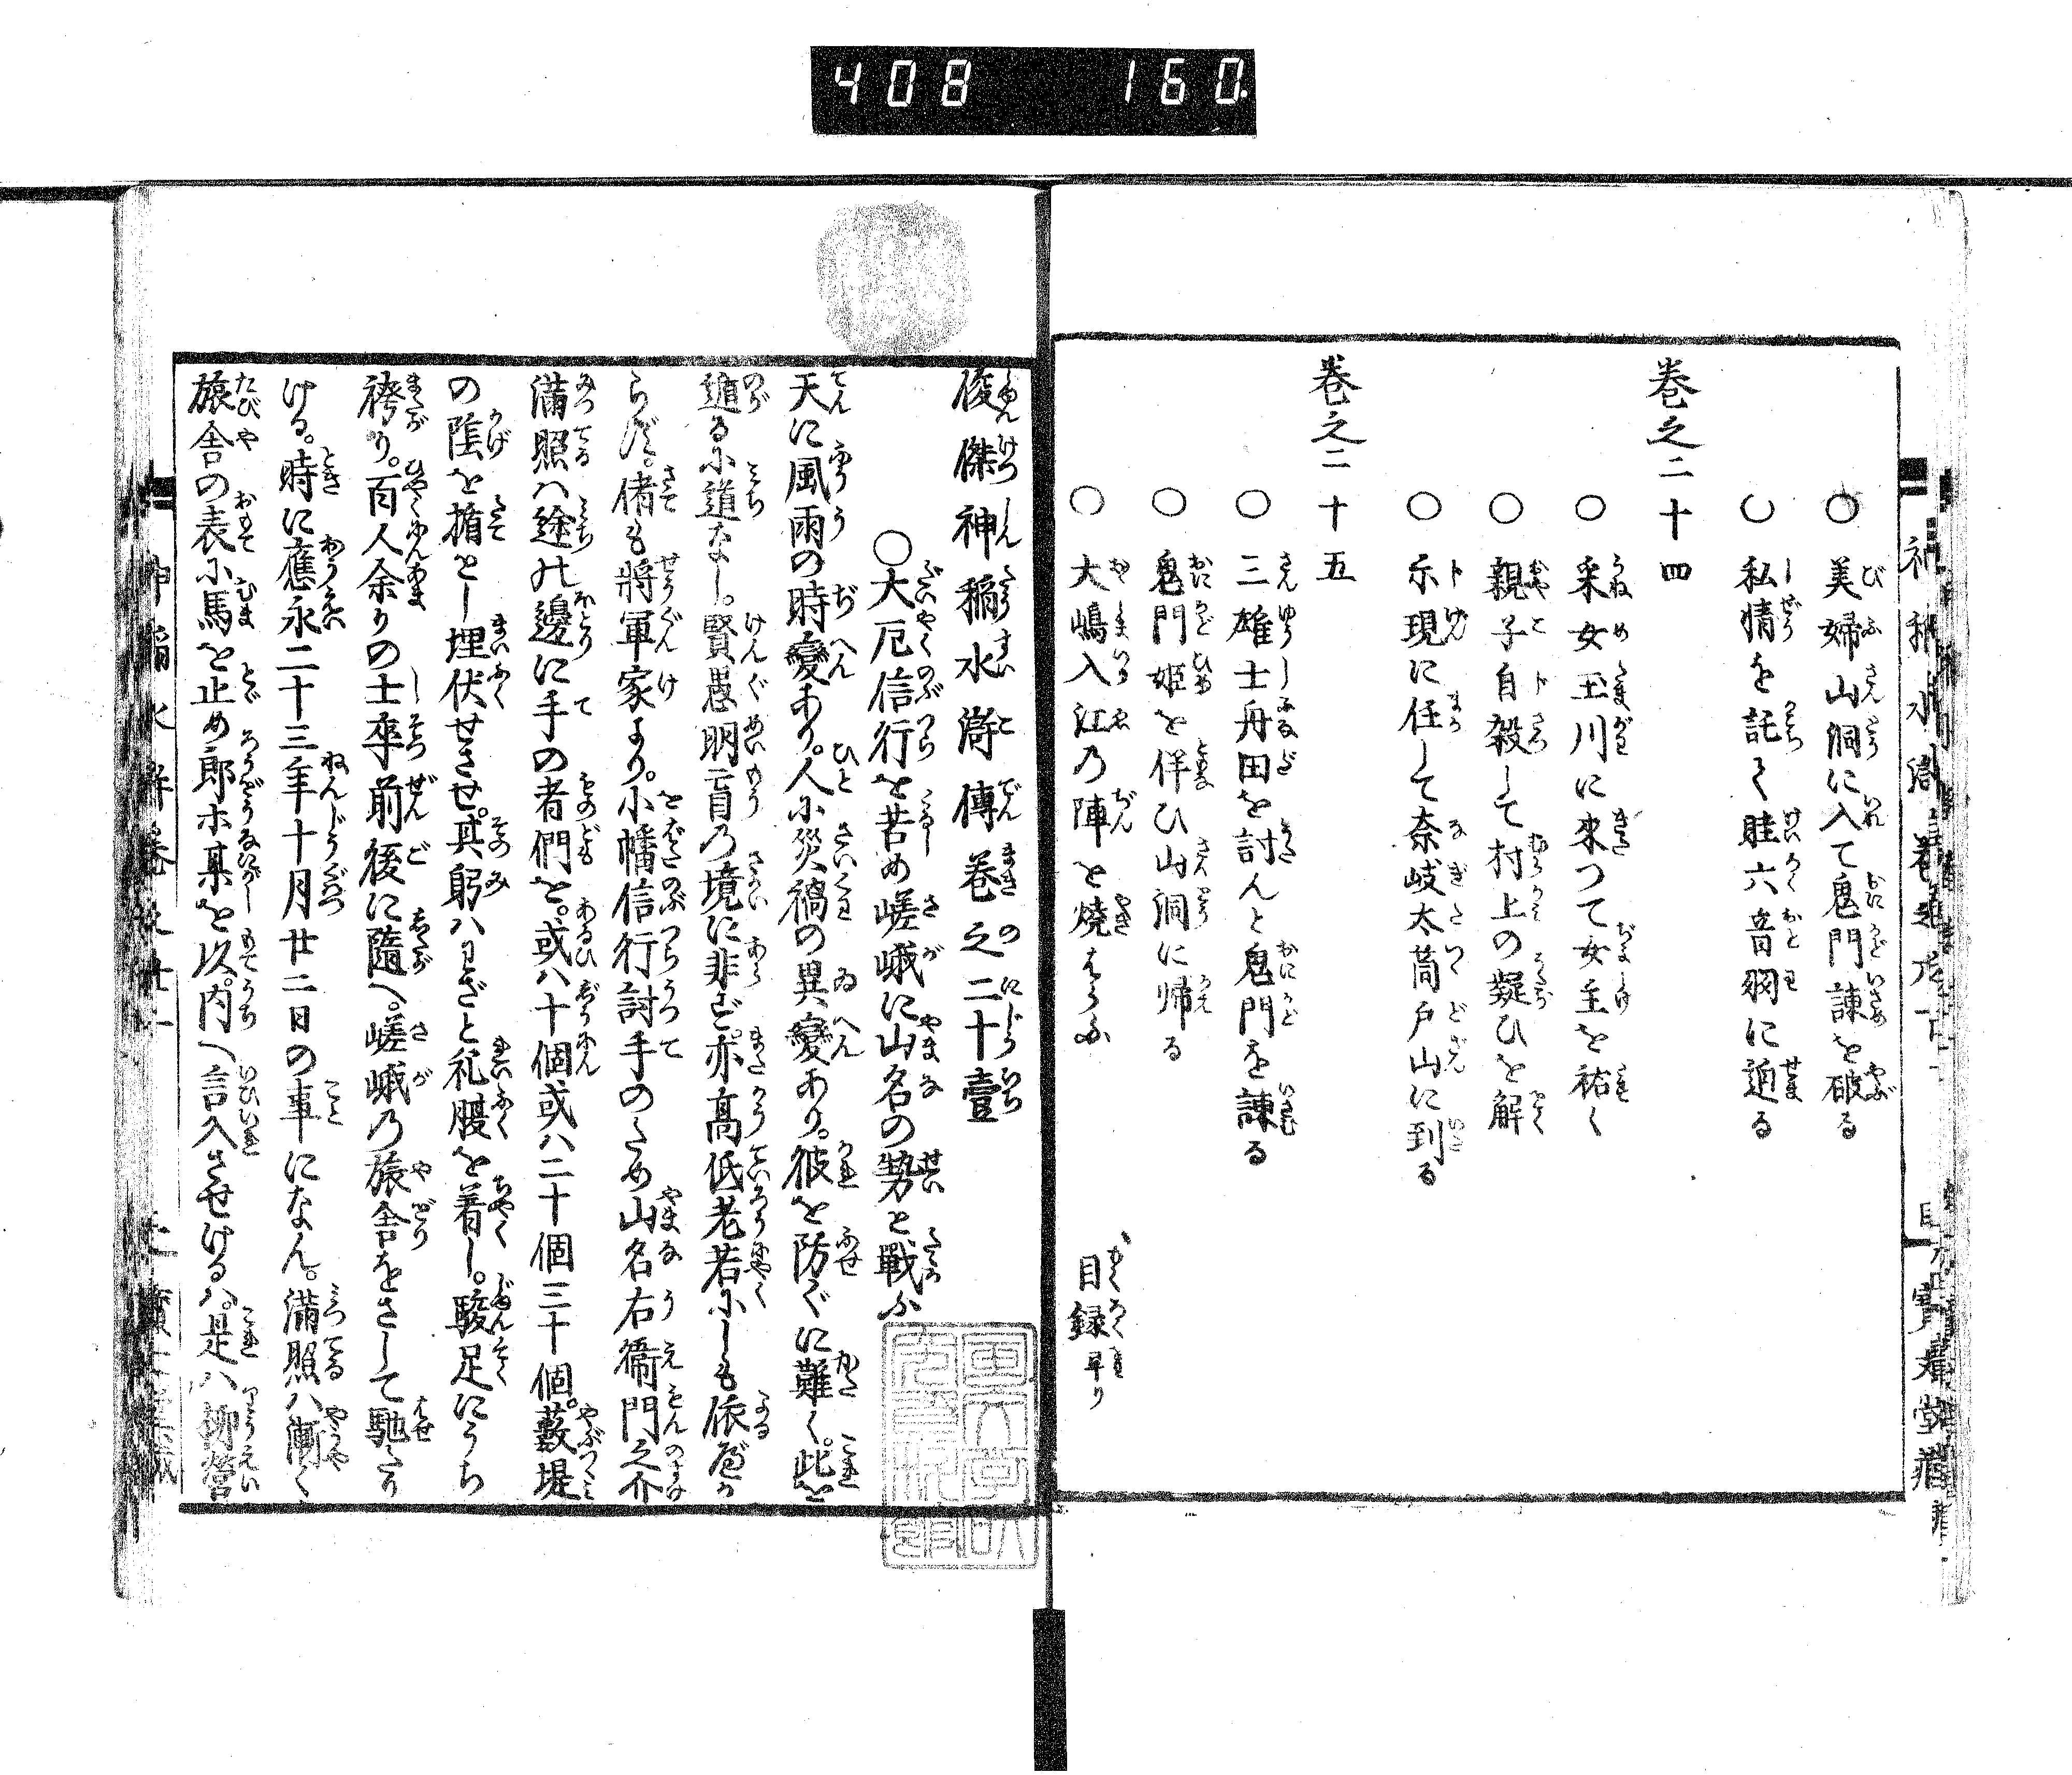 408 160.
○美婦山洞に入て鬼門諌を破る
○私情を託て畦六音羽に逈る
巻之二十四
○采女玉川に来つて女主を祐く
○親子自殺して村上の疑ひを解
○示現に任して奈岐太茼戸山に到る
巻之二十五
○三雄士舟田を討んと鬼門を諌る
○鬼門姫を伴ひ山洞に帰る
○大嶋入江の陣を焼はらふ
目録早り
俊傑神稲水滸傳巻之二十壹
○大厄信行を苦め嵯峨に山名の勢と戰ふ
天に風雨の時變あり。人小災禍の異變あり。彼を防ぐに難く。此を
遁る小道なし。賢愚明盲の境に非ず。亦高低老若小しも依る
らず。偖も將軍家より。小幡信行討手のため山名右衞門之介
満照ハ途の邊に手の者們を。或ハ十個或ハ二十個三十個。藪堤
の陰を楯とし埋伏せさせ。其躬ハわざと礼服を着し。駿足にうち
袴り。百人余りの士卒前後に隨へ。嵯峨の旅舎をさして馳たり
ける。時に應永二十三年十月廿二日の事になん。満照ハ漸く
旅舎の表小馬を止め郎等某を以。内へ言入させけるハ。是ハ柳營